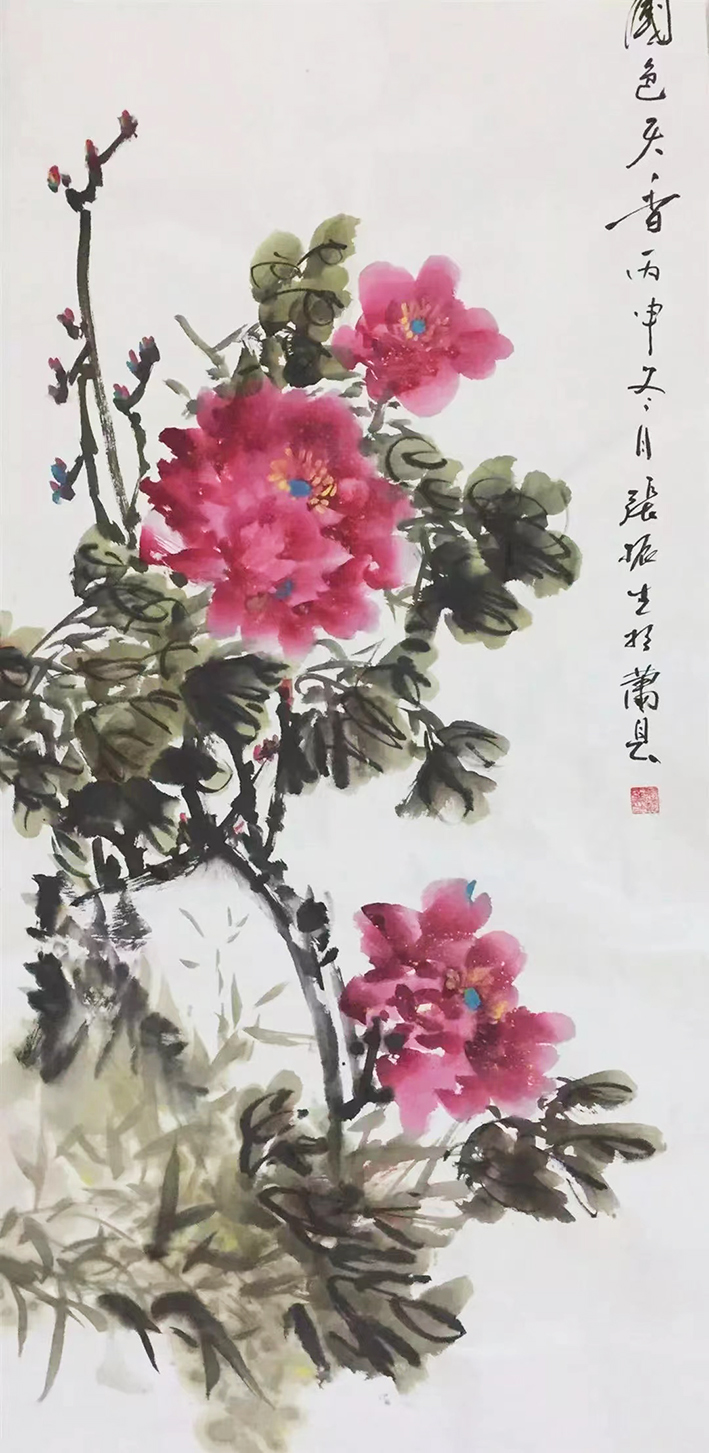 國色天香丙申冬月張振生於蕭县